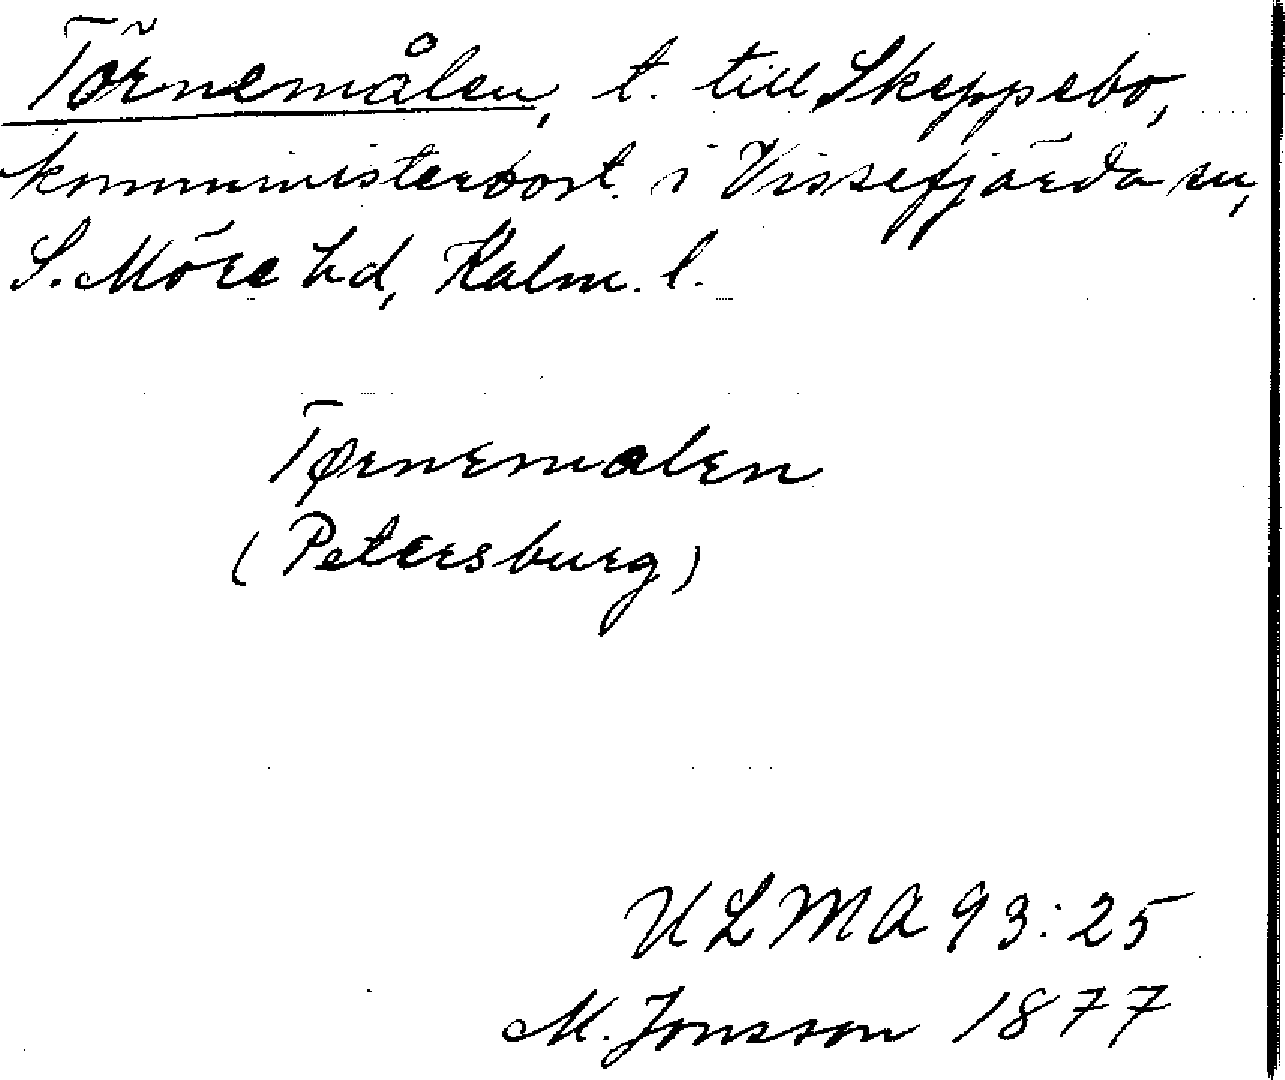 Törnemålen, t. till Skeppebo,
kommunisterbost. i Vissefjärda sn,
S. Möre hd, Kalm. l.
Tørnemalen
(Petersburg)
ULMA 93:25
M. Jonsson 1877